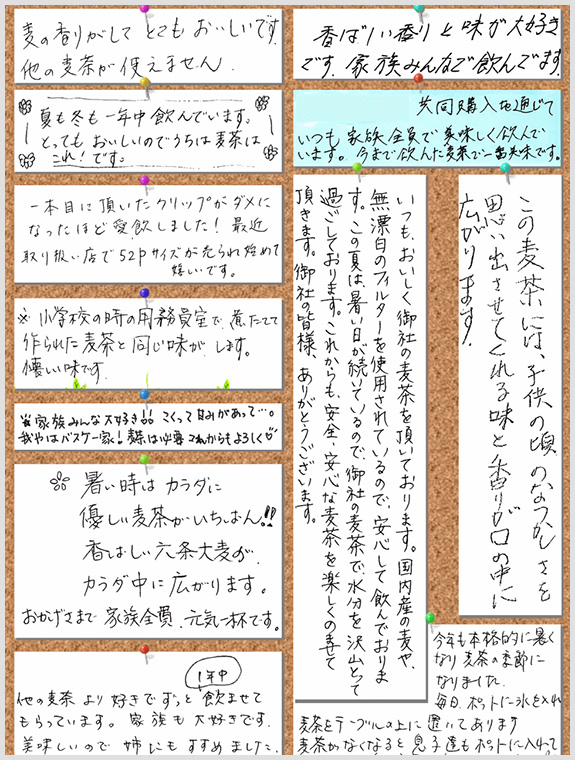 麦の香りがして とても おいしいです.
他の麦茶が使えません.
夏も冬も一年中飲んでいます。
とっても おいしいのでうちは麦茶は
これ!です。
一本目に頂いたクリップがダメに
なったほど愛飲しました! 最近
取り扱い店で52Pサイズが売られ始めて
嬉しいです。
※ 小学校の時の用務員室で、煮たてて
作られた麦茶と同じ味がします。
懐しい味です.
家族みんな大好き!! こくって甘みがあって…。
我やはバスケ一家! 麦茶は必需 これからもよろしく♡
暑い時は カラダに
優しい麦茶がいちばん!!
香ばしい六条大麦が.
カラダ中に 広がります。
おかげさまで 家族全員.元気一杯です。
1年中
他の麦茶 より 好きで ずっと 飲ませて
もらっています。 家族も 大好きです.
美味しいので 姉にも すすめ ました.
香ばしい香りと味が大好き
です. 家族みんなで飲んでます.
共同購入を通じて
いつも 家族全員で 美味しく飲んで
います。今まで飲んだ麦茶で一番美味です。
この麦茶には、子供の頃のなつかしさを
思い出させてくれる味と香りが口の中に
広がります.
いつも、おいしく御社の麦茶を頂いております。国内産の麦や、
無漂白のフィルターを使用されているので、安心して飲んでおりま
す。この夏は、暑い日が続いているので、御社の麦茶で水分を沢山とって
過ごしております。これからも、安全、安心な麦茶を楽しくのませて
頂きます。御社の皆様、ありがとうございます。
今年も本格的に暑く
なり 麦茶の季節に
なりました.
毎日.ポットに水を入れ
麦茶をテーブルの上に 置いてあります
麦茶がなくなると 息子達もポットに入れて